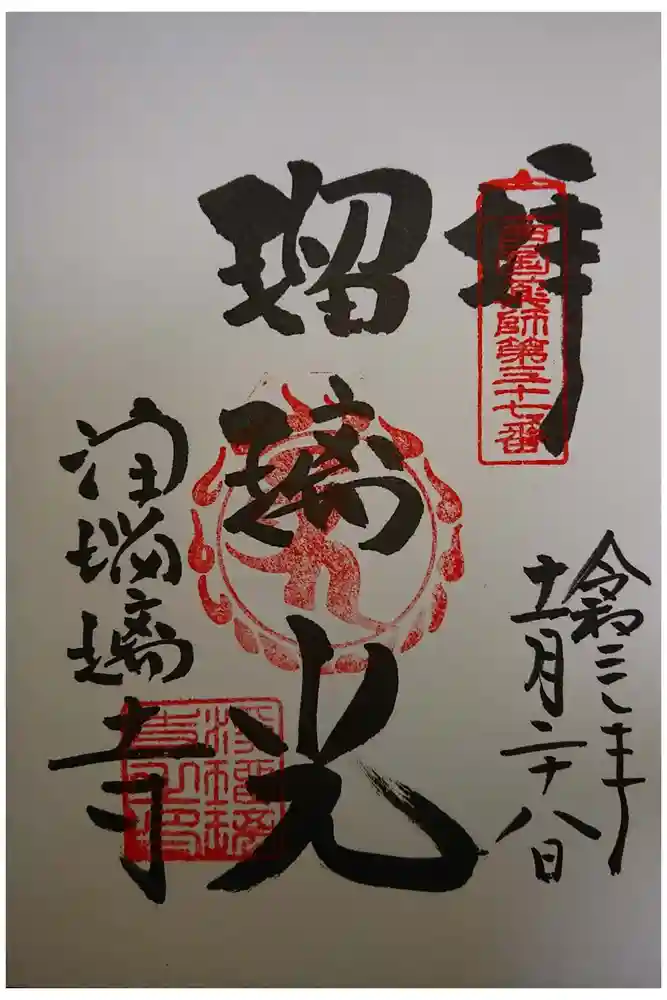 拝
西国薬師第三十七番
令和三年
十一月二十八日
瑠璃光
浄瑠璃寺